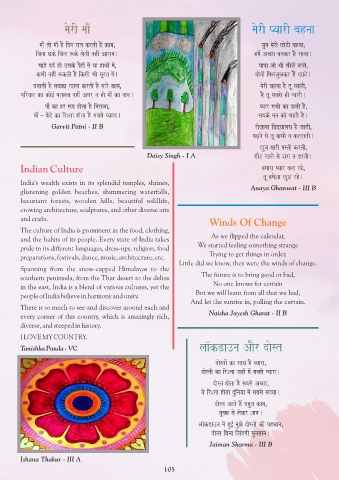 मेरी माँ
माँ तो माँ है दिन रात करती है काम,
बिना थके बिना रुके लेती नहीं आराम।
चाहे दर्द हो उसके पैरों में या हाथों में,
कभी नहीं रुकती है किसी भी सूरत में।
बनाती है सबका खाना करती है सारे काम,
परिवार का कोई मतलब नहीं अगर न हो माँ का नाम।
माँ का हर रूप होता है निराला,
माँ - बेटे का रिश्ता होता है सबसे प्यारा।
Garvit Patni - II B
Daisy Singh - I A
मेरी प्यारी बहना
सुन मेरी छोटी बहना,
हमें अच्छा बनकर है रहना।
पापा जो भी चीजें लाते,
दोनों मिलजुलकर हैं खाते।
मेरी बहना है तू प्यारी,
है तू सबसे ही न्यारी।
प्यार सभी का पाती है,
सबके मन को भाती है।
रोजाना विद्यालय है जाती,
पढ़ने से तू कभी न कतराती।
खूब सारी मस्ती करती,
डाँट खाने से ज़रा न डरती।
हमारा प्यार बना रहे,
तू हमेशा खुश रहे।
Anaya Ghanwat - III B
Indian Culture
India's wealth exists in its splendid temples, shrines,
glistening golden beaches, shimmering waterfalls,
luxuriant forests, wooden hills, beautiful wildlife,
crowing architecture, sculptures, and other diverse arts
and crafts.
The culture of India is prominent in the food, clothing,
and the habits of its people. Every state of India takes
pride in its different languages, dress-ups, religion, food
preparations, festivals, dance, music, architecture, etc.
Spanning from the snow-capped Himalayas to the
southern peninsula, from the Thar desert to the deltas
in the east, India is a blend of various cultures, yet the
people of India believe in harmony and unity.
There is so much to see and discover around each and
every corner of this country, which is amazingly rich,
diverse, and steeped in history.
I LOVE MY COUNTRY.
Tanishka Panda - VC
Winds Of Change
As we flipped the calendar,
We started feeling something strange
Trying to get things in order,
Little did we know, they were the winds of change.
The future is to bring good or bad,
No one knows for certain
But we will learn from all that we had,
And let the sunrise in, pulling the curtain.
Naisha Jayesh Gharat - II B
लॉकडाउन और दोस्त
दोस्तों का साथ है प्यारा,
दोस्ती का रिश्ता जहाँ में सबसे न्यारा।
दोस्त होता है सबसे अच्छा,
ये रिश्ता होता दुनिया में सबसे सच्चा।
दोस्त आते हैं बहुत काम,
सुबह से लेकर शाम।
लॉकडाउन में हुई मुझे दोस्तों की पहचान,
दोस्त बिना ज़िंदगी सुनसान।
Jaiman Sharma - III B
Ishana Thakur - III A
105